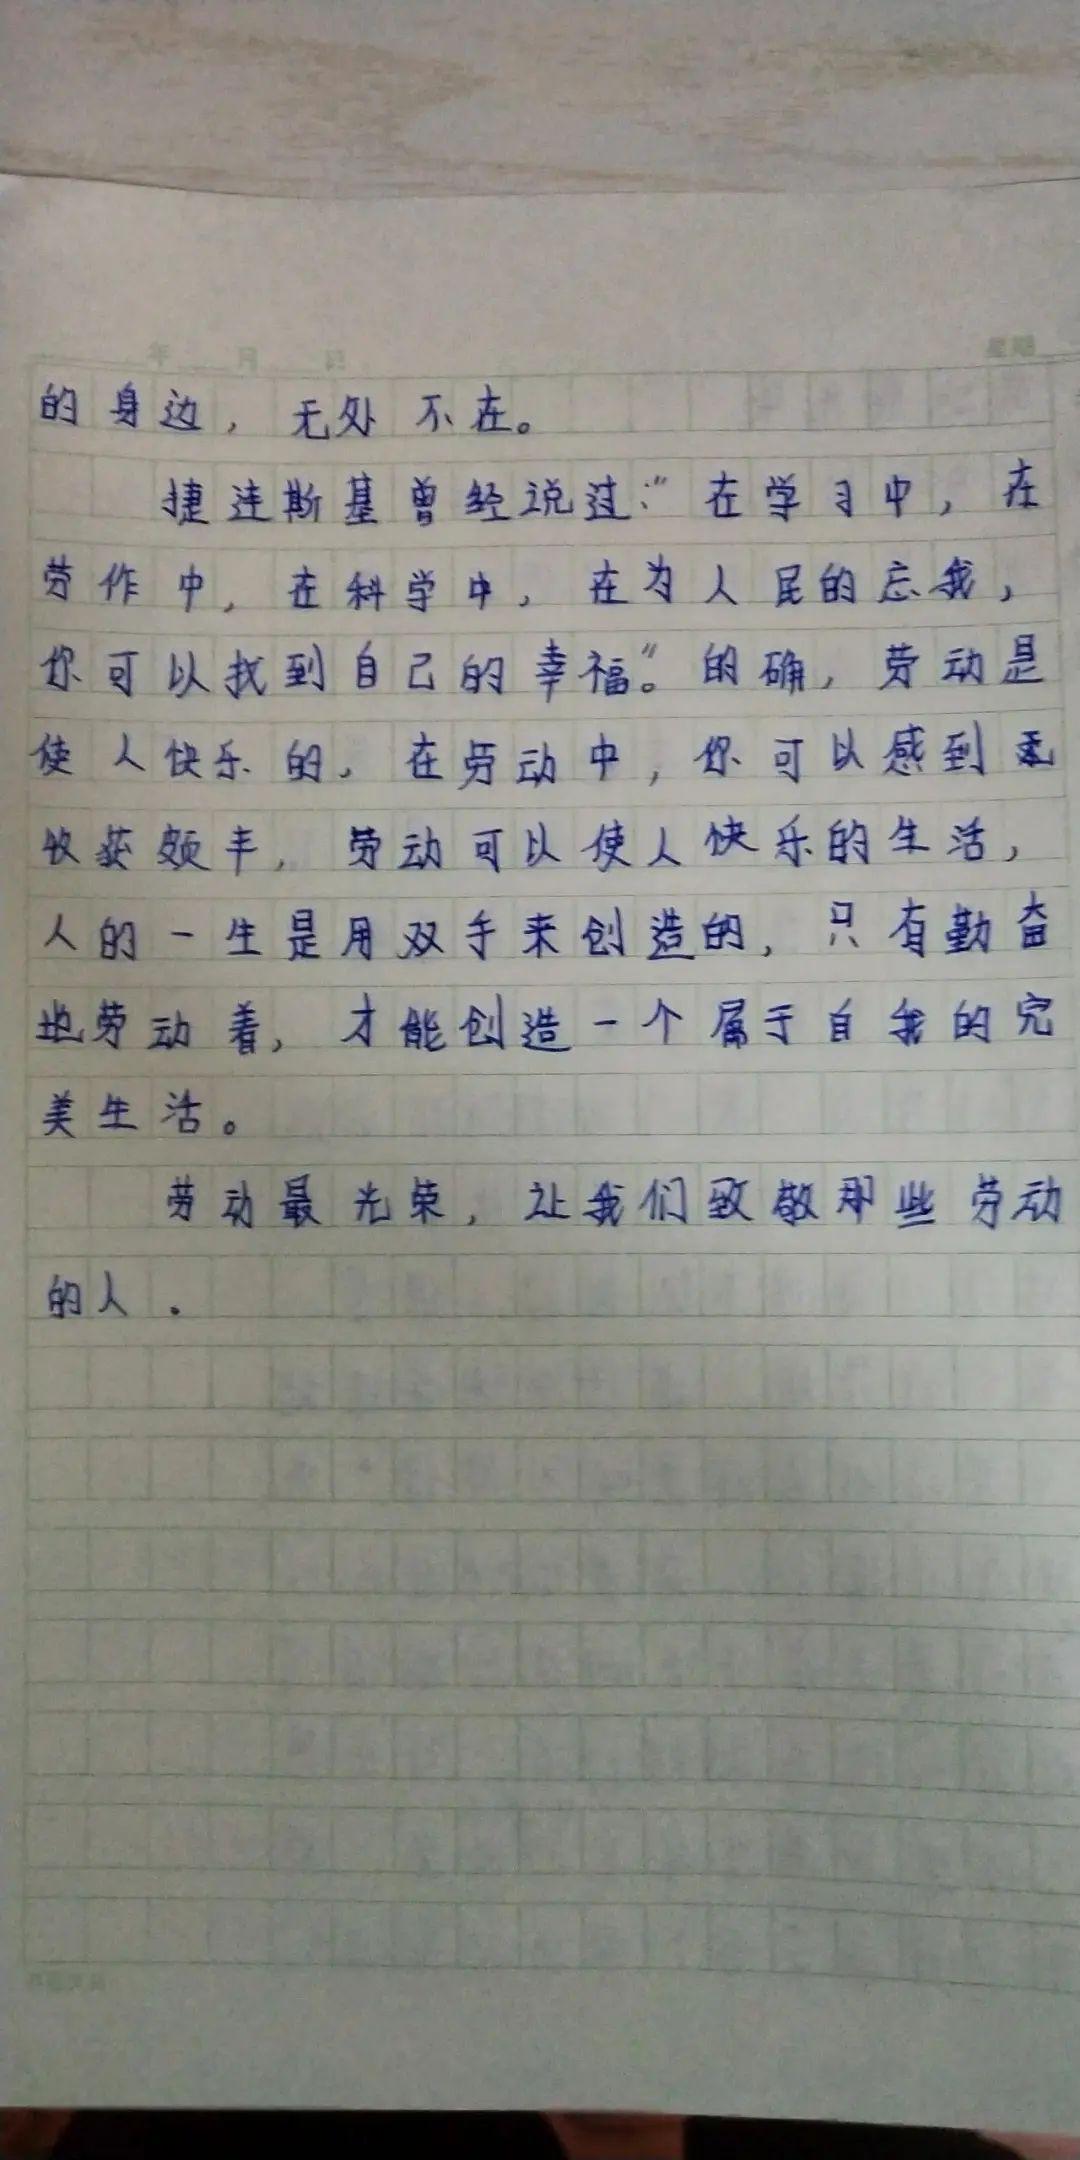 的身边，无处不在。
捷连斯基曾经说过："在学习中，在
劳作中，在科学中，在为人民的忘我，
你可以找到自己的幸福。"的确，劳动是
使人快乐的，在劳动中，你可以感到
收获颇丰，劳动可以使人快乐的生活，
人的一生是用双手来创造的，只有勤奋
地劳动着，才能创造一个属于自我的完
美生活。
劳动最光荣，让我们致敬那些劳动
的人．